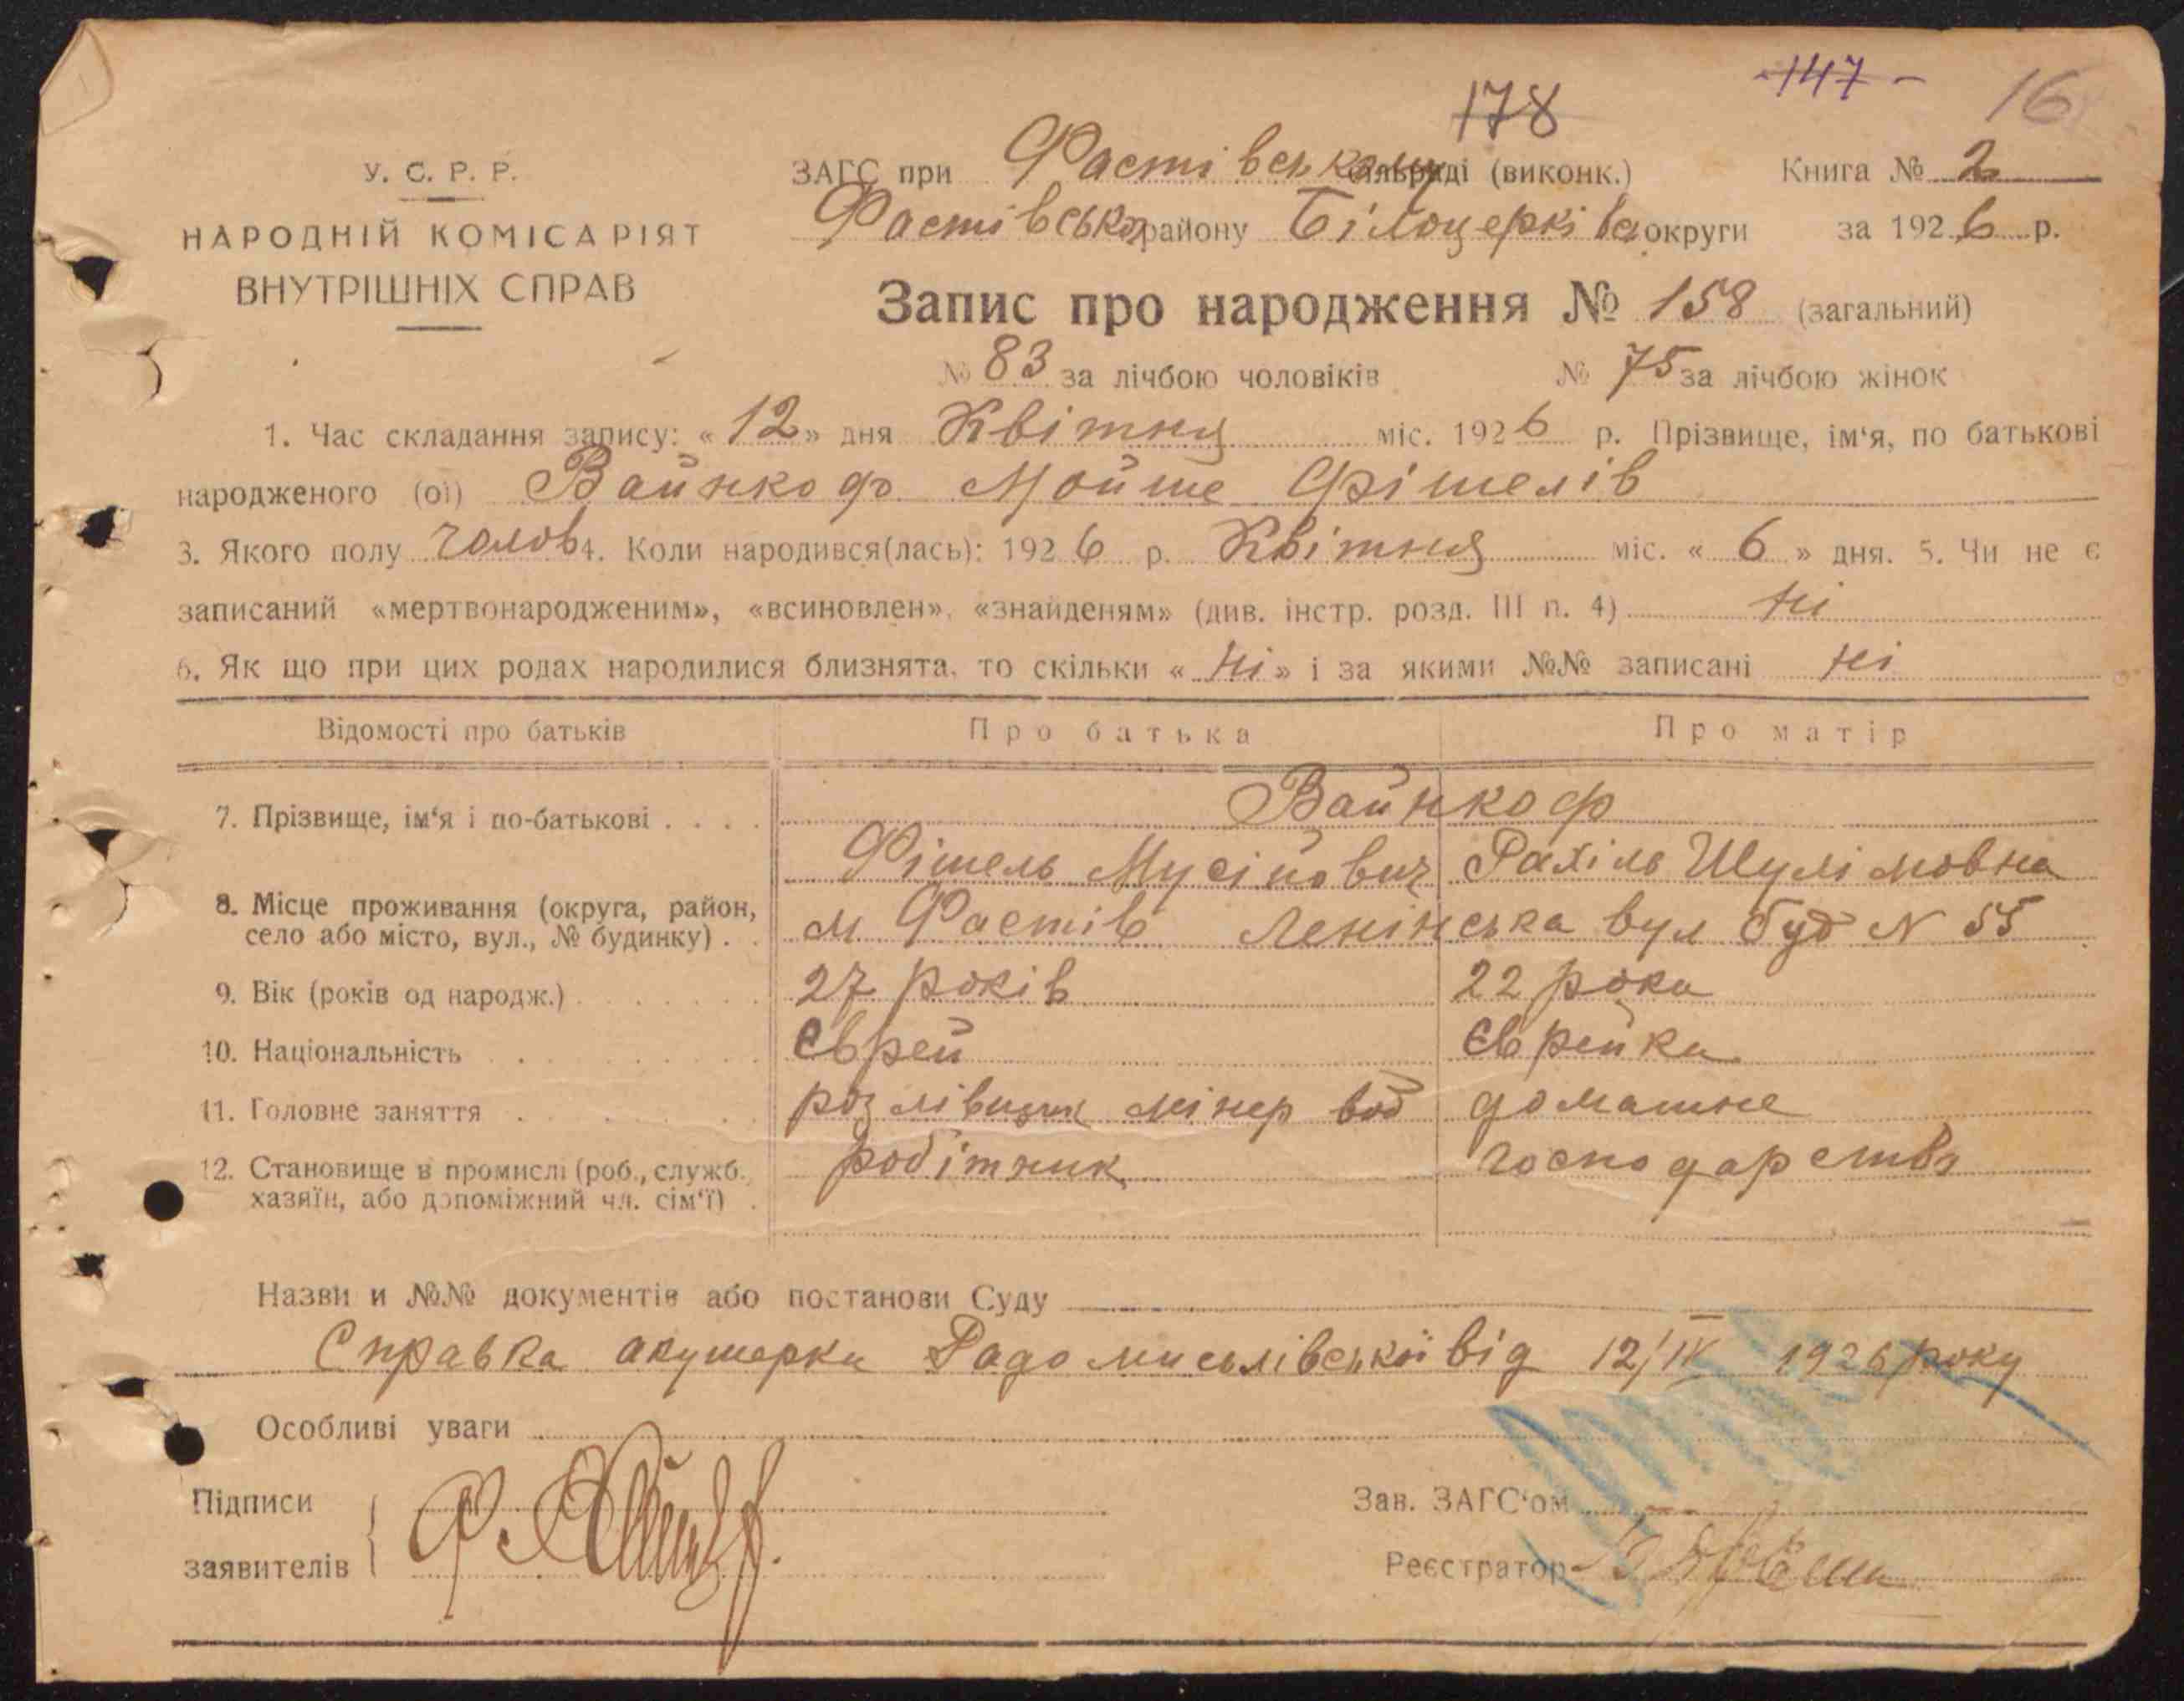 -147-
16
178
У. С. Р. Р.
НАРОДНІЙ КОМІСАРІЯТ
ВНУТРІШНІХ СПРАВ
ЗАГС при Фастівському сільраді (виконк.) Книга № 2
Фастівськ району Білоцерківс округи за 1926 р.
Запис про народження № 158 (загальний)
№ 83 за лічбою чоловіків № 75 за лічбою жінок
1. Час складання запису: «12» дня Квітня міс. 1926 р. Прізвище, ім'я, по батькові
народженого (ої) Вайнкоф Мойше Фішелів
3. Якого полу чолов 4. Коли народився(лась): 1926 р. Квітня міс. «6» дня. 5. Чи не є
записаний «мертвонародженим», «всиновлен», «знайденям» (див. інстр. розд. III п. 4) Ні
6. Як що при цих родах народилися близнята, то скільки «Ні» і за якими №№ записані Ні
Відомості про батьків Про батька Про матір
7. Прізвище, ім'я і по-батькові Вайнкоф
Фішель Мусійович Рахіль Шулімовна
8. Місце проживання (округа, район,
село або місто, вул., № будинку) м Фастів Ленінська вул буд N 55
9. Вік (років од народж.) 27 років 22 роки
10. Національність Єврей Єврейка
11. Головне заняття розлівщик мінер вод домашнє
12. Становище в промислі (роб., служб. робітник господарство
хазяїн, або допоміжний чл. сім'ї)
Назви и №№ документів або постанови Суду
Справка акушерки Радомисьлівської від 12/IV 1926 року
Особливі уваги
Підписи
Зав. ЗАГС'ом
заявителів
Реєстратор